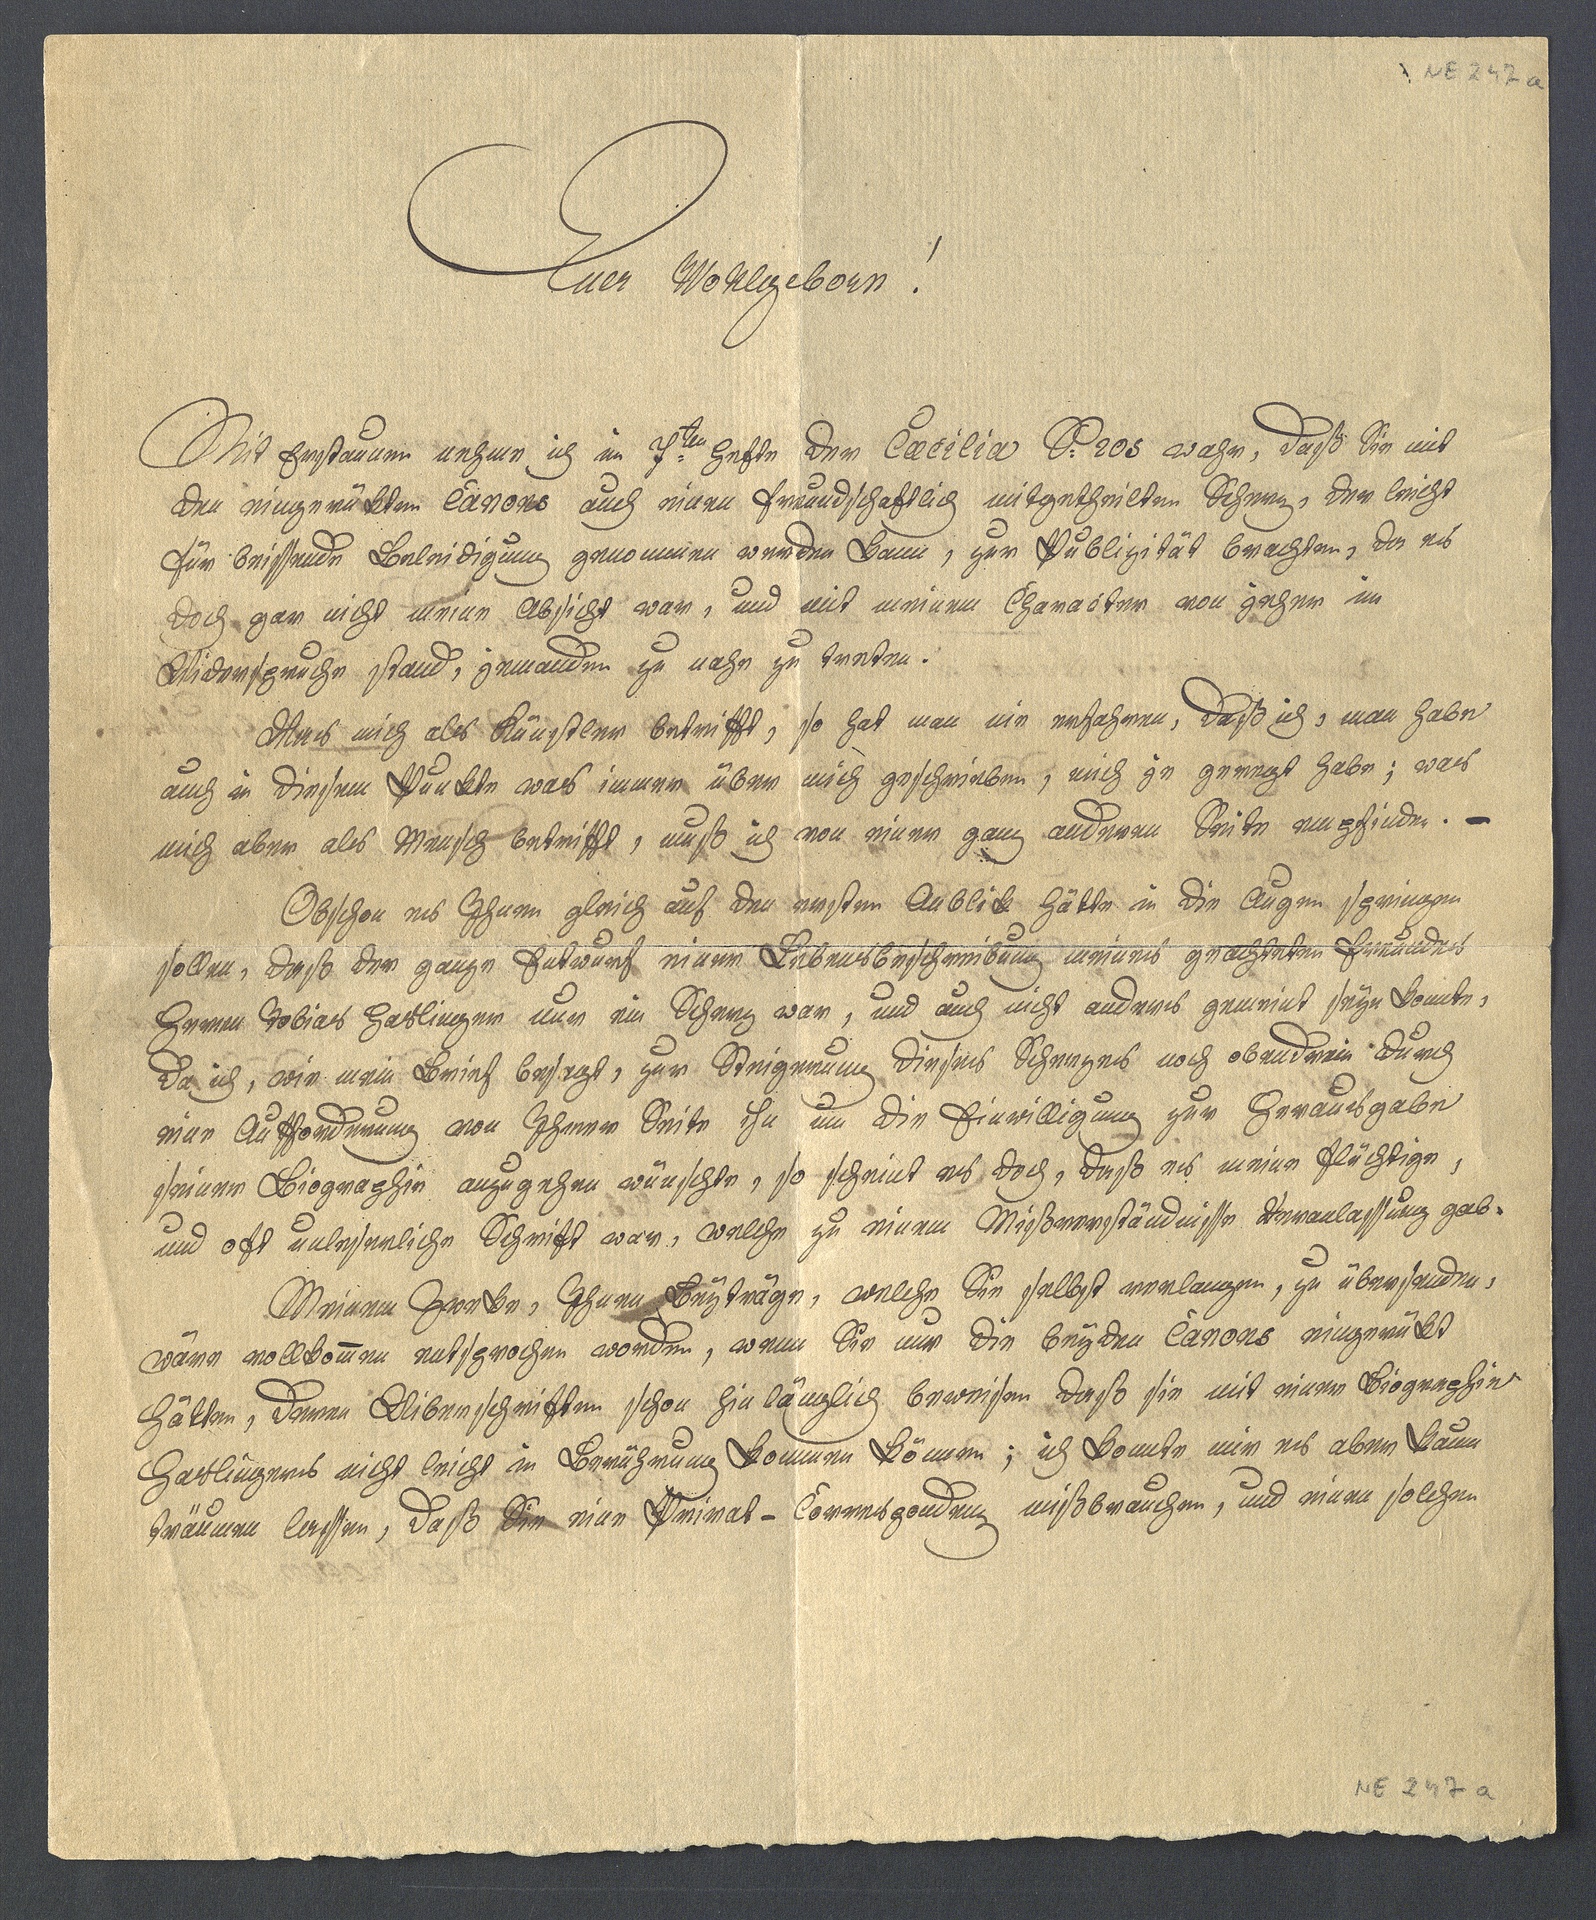 NE 247 a
Euer Wohlgeborn!
Mit Erstaunen nehme ich im 7ten Hefte der Cæcilia S: 205 wahr, daß Sie mit
den eingerükten Canons auch einen freundschaftlich mitgetheilten Scherz, der leicht
für beissende Beleidigung genommen werden kann, zur Publizität brachten, da es
doch gar nicht meine Absicht war, und mit meinem Character von jeher im
Widerspruche stand, jemanden zu nahe zu treten.
Was mich als Künstler betrifft, so hat man nie erfahren, daß ich, man habe
auch in diesem Punkte was immer über mich geschrieben, mich je geregt habe; was
mich aber als Mensch betrifft, muß ich von einer ganz anderen Seite empfinden. –
Obschon es Ihnen gleich auf den ersten Anblik hätte in die Augen springen
sollen, daß der ganze Entwurf einer Lebensbeschreibung meines geachteten Freundes
Herrn Tobias Haslinger nur ein Scherz war, und auch nicht anders gemeint seyn konnte,
da ich, wie mein Brief besagt, zur Steigerung dieses Scherzes noch obendrein durch
eine Aufforderung von Ihrer Seite ihn um die Einwilligung zur Herausgabe
seiner Biographie anzugehen wünschte, so scheint es doch, daß es meine flüchtige,
und oft unleserliche Schrift war, welche zu einem Mißverständnisse Veranlassung gab.
Meinem Zweke, Ihnen Beyträge, welche Sie selbst verlangen, zu übersenden,
wäre vollkom̅en entsprochen worden, wenn Sie nur die beyden Canons eingerükt
hätten, deren Uiberschriften schon hinlänglich beweisen daß sie mit einer Biographie
Haslingers nicht leicht in Berührung kommen können; ich konnte mir es aber kaum
träumen lassen, daß Sie eine Privat-Correspondenz mißbrauchen, und einen solchen
NE 247 a